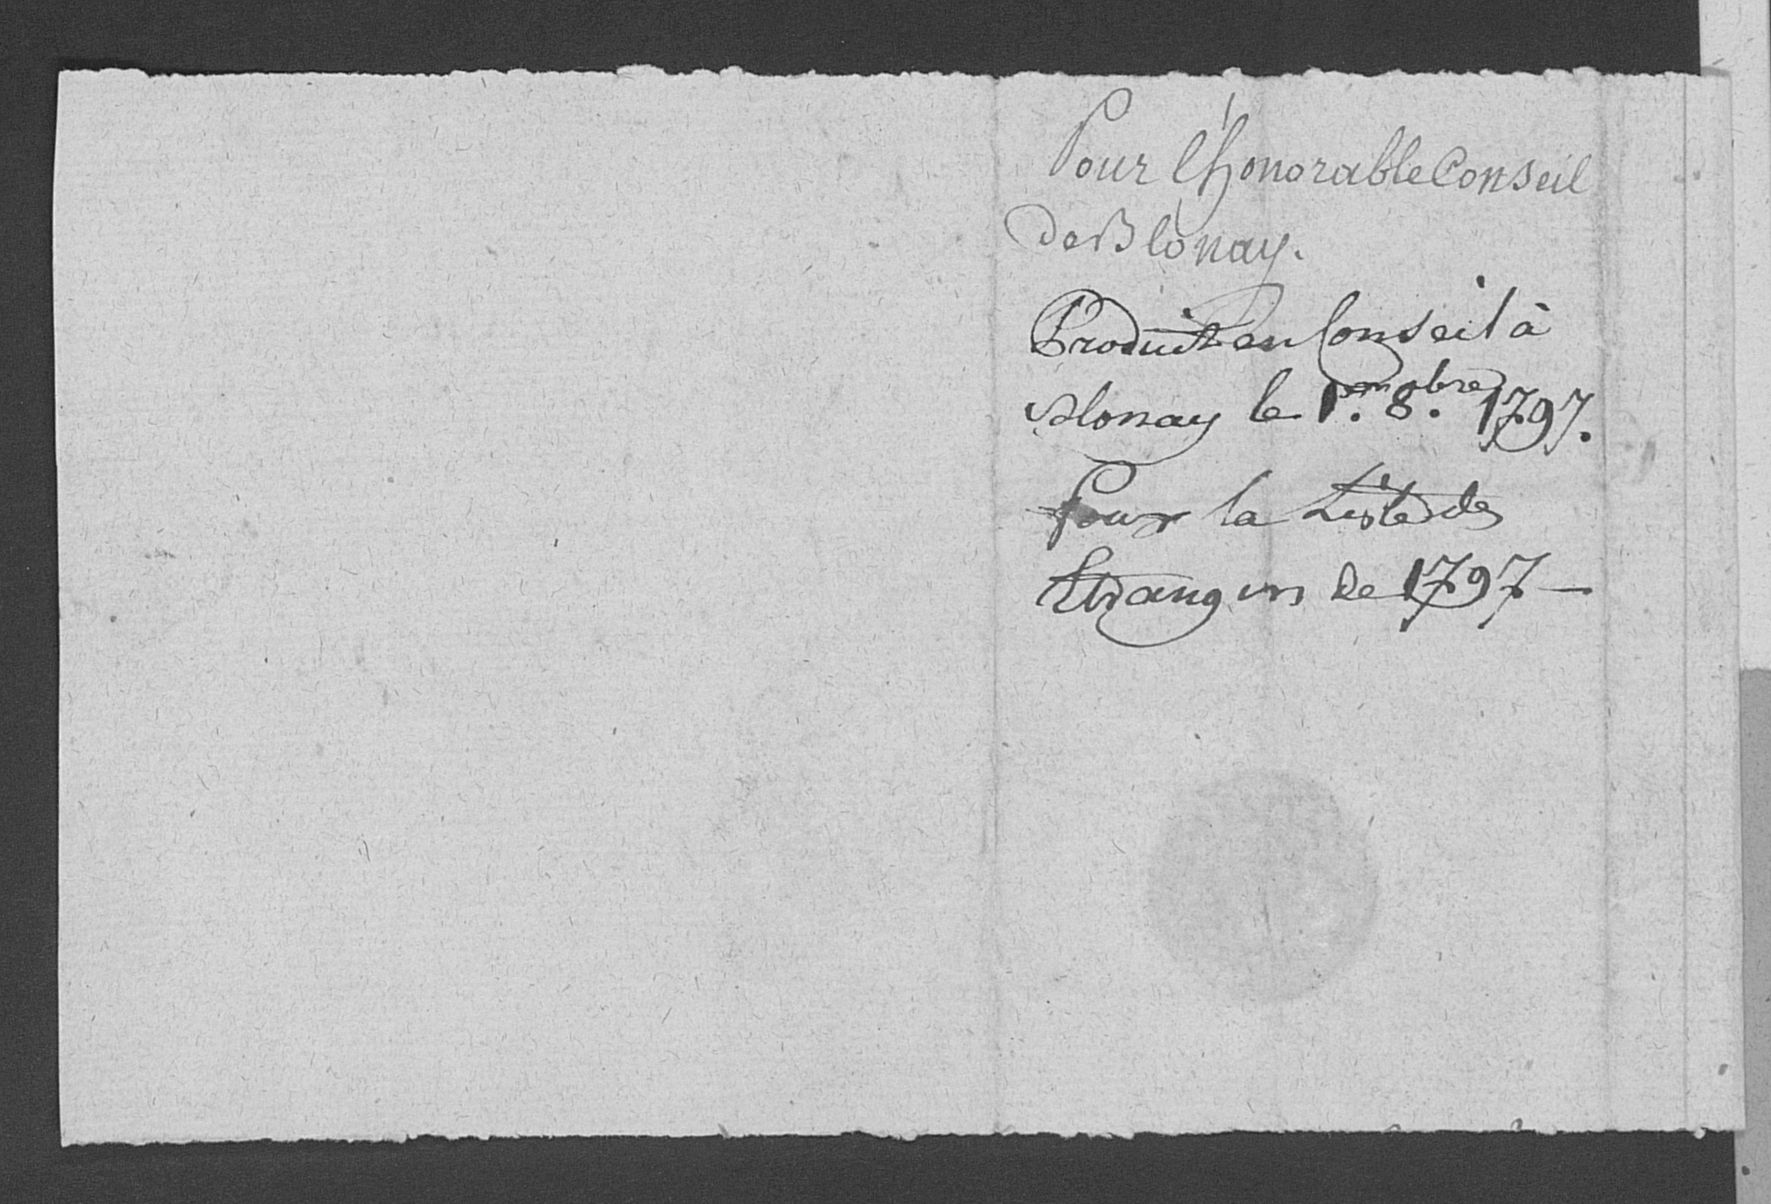 Pour l'honorable Conseil
De Blonay.
Produit en Conseil à
Blonay le 1.er 8.bre 1797.
Pour la Liste des
Etrangers de 1797 —